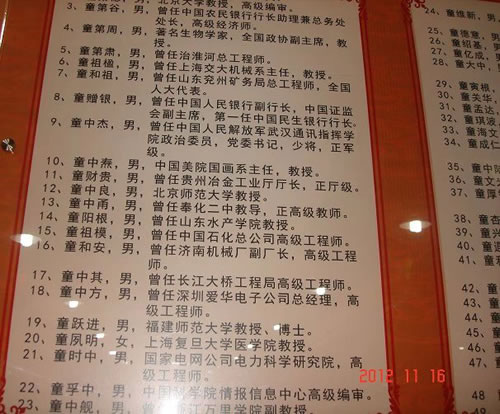 北京大学教授，高级编审。
3、童第谷，男，曾任中国农民银行行长助理兼总务处
处长，高级经济师。
4、童第周，男，著名生物学家，全国政协副主席，教
授。
5、童第肃，男，曾任治淮河总工程师。
6、童祖楹，男，曾任上海交大机械系主任，教授。
7、童和祖，男，曾任山东兖州矿务局总工程师，全国
人大代表。
8、童赠银，男，曾任中国人民银行副行长，中国证监
会副主席，第一任中国民生银行行长。
9、童中杰，男，曾任中国人民解放军武汉通讯指挥学
院政治委员，党委书记，少将，正军
级。
10、童中焘，男，中国美院国画系主任，教授。
11、童财贵，男，曾任贵州冶金工业厅厅长，正厅级。
12、童中良，男，北京师范大学教授。
13、童中甬，男，曾任奉化二中教导，正高级教师。
14、童阳根，男，曾任山东水产学院教授。
15、童祖模，男，曾任中国石化总公司高级工程师。
16、童和安，男，曾任济南机械厂副厂长，高级工程
师。
17、童中其，男，曾任长江大桥工程局高级工程师。
18、童中方，男，曾任深圳爱华电子公司总经理，高
级工程师。
19、童跃进，男，福建师范大学教授、博士。
20、童夙明，女，上海复旦大学医学院教授。
21、童时中，男，国家电网公司电力科学研究院，高
级工程师。
22、童孚中，男，中国科学院情报信息中心高级编审。
23、童中舰，男，曾任浙江万里学院副教授。
24、童维新，男
25、童德意，
26、童绍基，
27、童亿成，
28、童大中，
29、童寅根，
30、童关华，
31、童孟达，
32、童琪
33、童海
34、童成仁
35、童中
36、童文
37、童萍
38、童杏
39、童
40、童
41、童
42、童
43、
44、
45、
46
47
48
49
2012 11 16